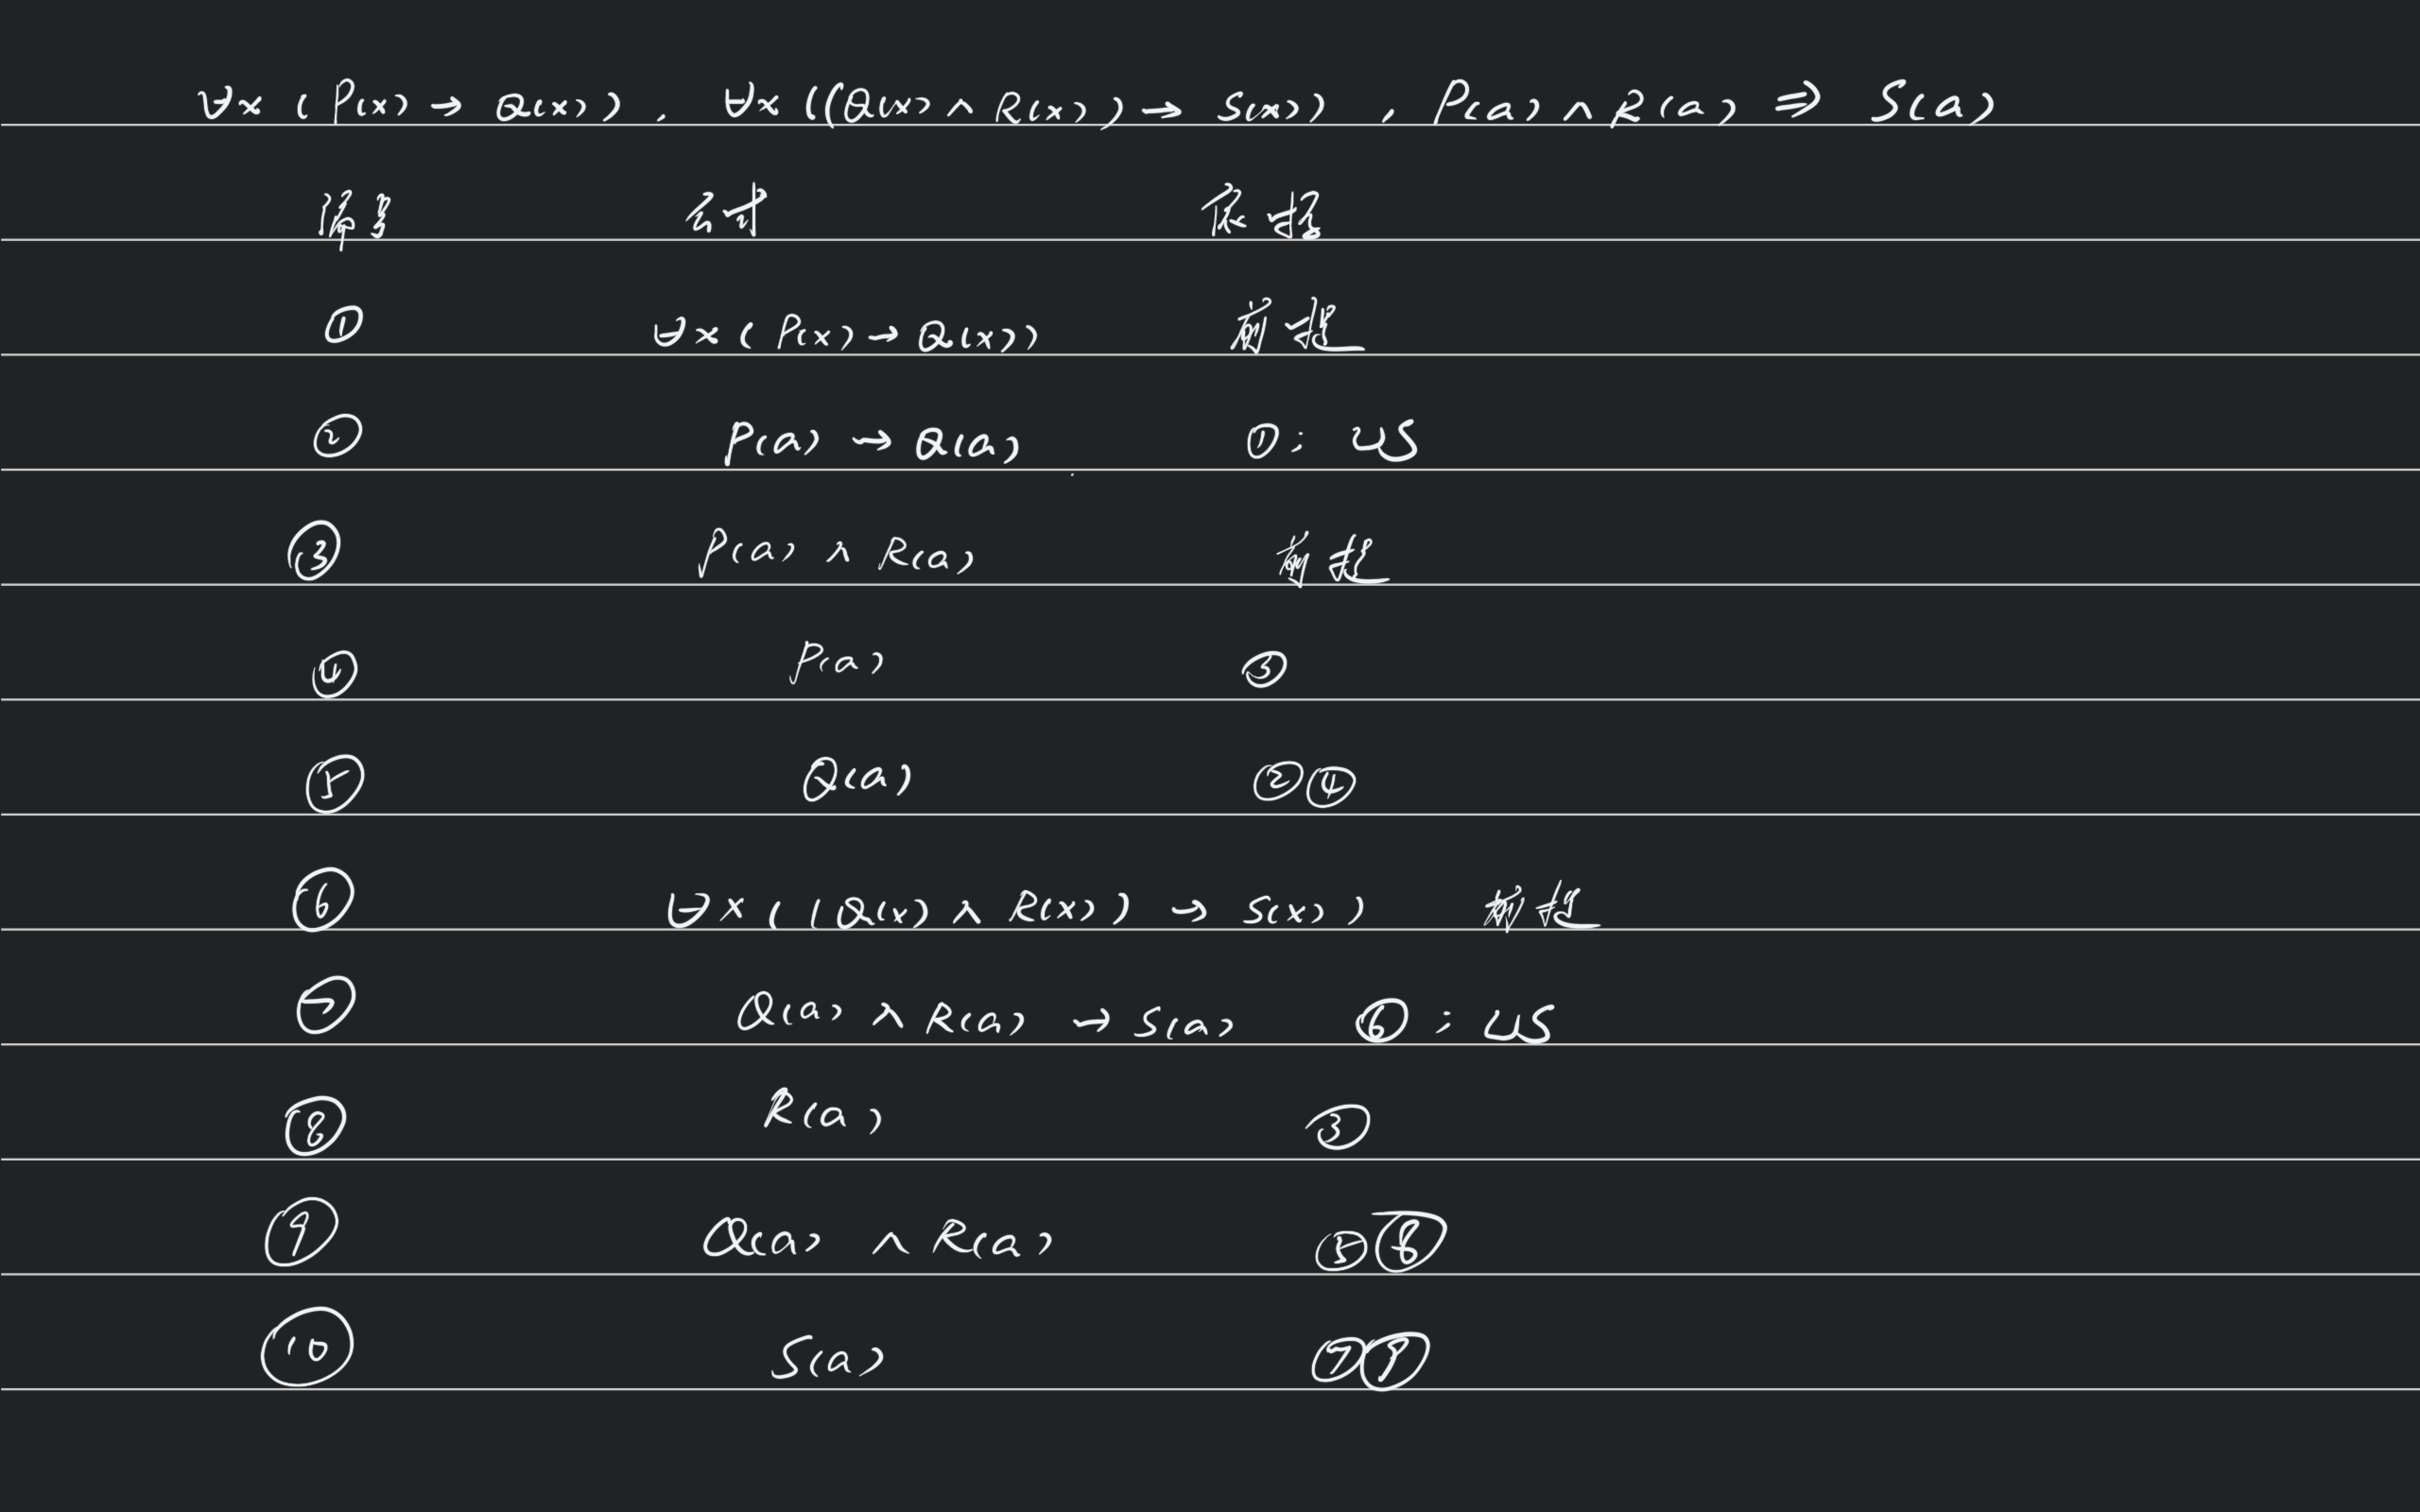 ∀x (P(x) → Q(x)) , ∀x ((Q(x) ∧ R(x)) → S(x)) , P(a) ∧ R(a) ⇒ S(a)
依据
① ∀x (P(x) → Q(x)) 前提
② P(a) → Q(a) ①; US
③ P(a) ∧ R(a) 前提
④ P(a) ③
⑤ Q(a) ②④
⑥ ∀x ((Q(x) ∧ R(x)) → S(x)) 前提
⑦ Q(a) ∧ R(a) → S(a) ⑥; US
⑧ R(a) ③
⑨ Q(a) ∧ R(a) ⑤⑧
⑩ S(a) ⑦⑨